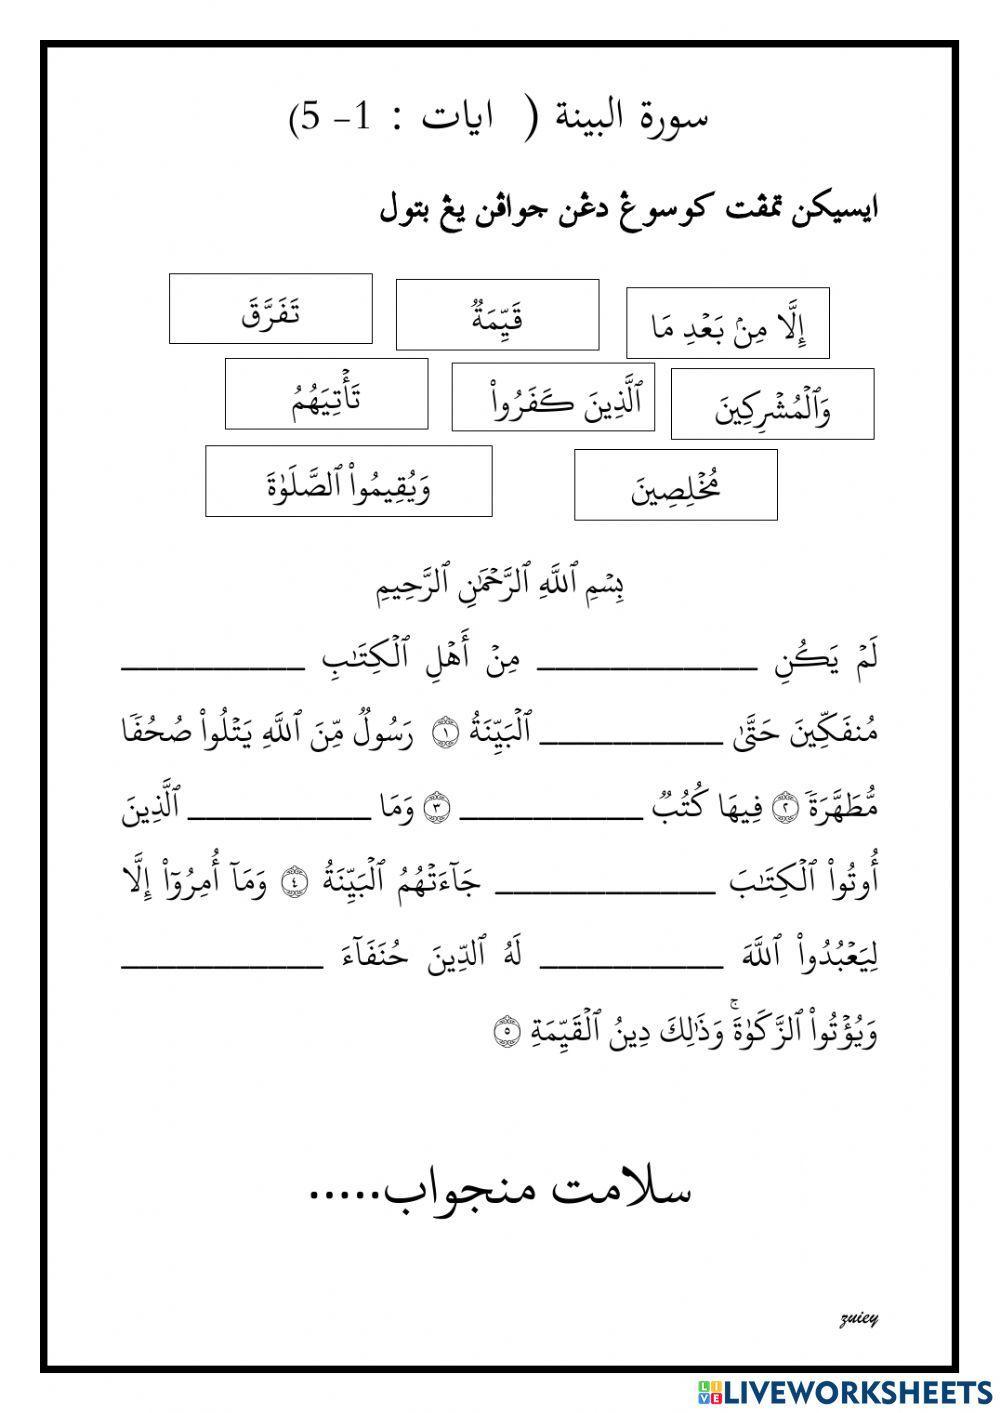 سورة البينة ( ايات : 1- 5)
ايسيكن تمڤت كوسوڠ دڠن جواڤن يڠ بتول
تَفَرَّقَ
قَيِّمَةٞ
إِلَّا مِنۢ بَعۡدِ مَا
تَأۡتِيَهُمُ
ٱلَّذِينَ كَفَرُواْ
وَٱلۡمُشۡرِكِينَ
وَيُقِيمُواْ ٱلصَّلَوٰةَ
مُخۡلِصِينَ
بِسۡمِ ٱللَّهِ ٱلرَّحۡمَٰنِ ٱلرَّحِيمِ
لَمۡ يَكُنِ ____________ مِنۡ أَهۡلِ ٱلۡكِتَٰبِ __________
مُنفَكِّينَ حَتَّىٰ __________ ٱلۡبَيِّنَةُ ١ رَسُولٞ مِّنَ ٱللَّهِ يَتۡلُواْ صُحُفٗا
مُّطَهَّرَةٗ ٢ فِيهَا كُتُبٞ __________ ٣ وَمَا __________ ٱلَّذِينَ
أُوتُواْ ٱلۡكِتَٰبَ ____________ جَآءَتۡهُمُ ٱلۡبَيِّنَةُ ٤ وَمَآ أُمِرُوٓاْ إِلَّا
لِيَعۡبُدُواْ ٱللَّهَ __________ لَهُ ٱلدِّينَ حُنَفَآءَ ___________
وَيُؤۡتُواْ ٱلزَّكَوٰةَۚ وَذَٰلِكَ دِينُ ٱلۡقَيِّمَةِ ٥
سلامت منجواب.....
zuicy
LIVEWORKSHEETS